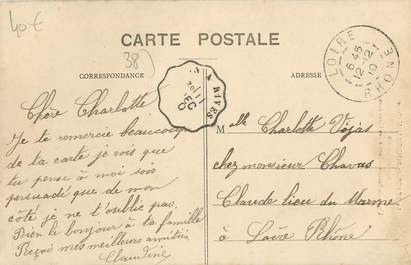 40€
38)
CARTE POSTALE
CORRESPONDANCE
ADRESSE
LOIRE
6 45
12-12
10
RHONE
A RIVES
11
DEC
Chère Charlotte
Je te remercie beaucoup
de ta carte je vois que
tu pense à moi sois
persuadé que de mon
côté je ne t'oublie pas.
Bien le bonjour à ta famille
Reçois mes meilleures amitiés
Claudine
Melle Charlotte
chez monsieur Chavas
Claude lieu du
à Loire Rhône